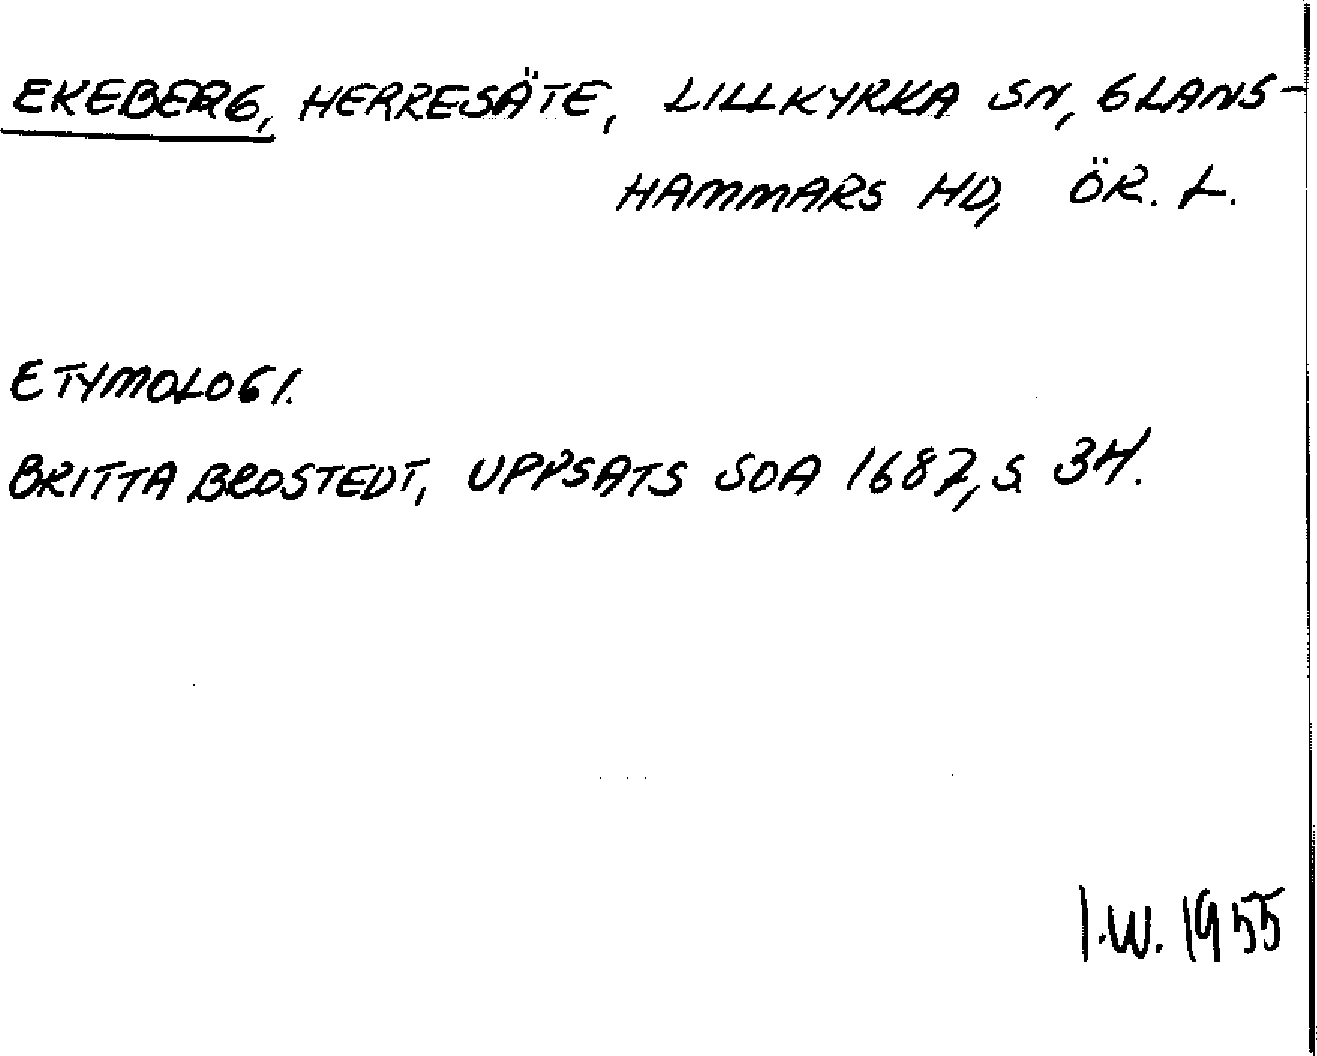 EKEBERG, HERRESÄTE, LILLKYRKA SN, GLANS-
HAMMARS HD, ÖR. L.
ETYMOLOGI.
BRITTA BROSTEDT, UPPSATS SOA 1687, S. 34.
I.W. 1955